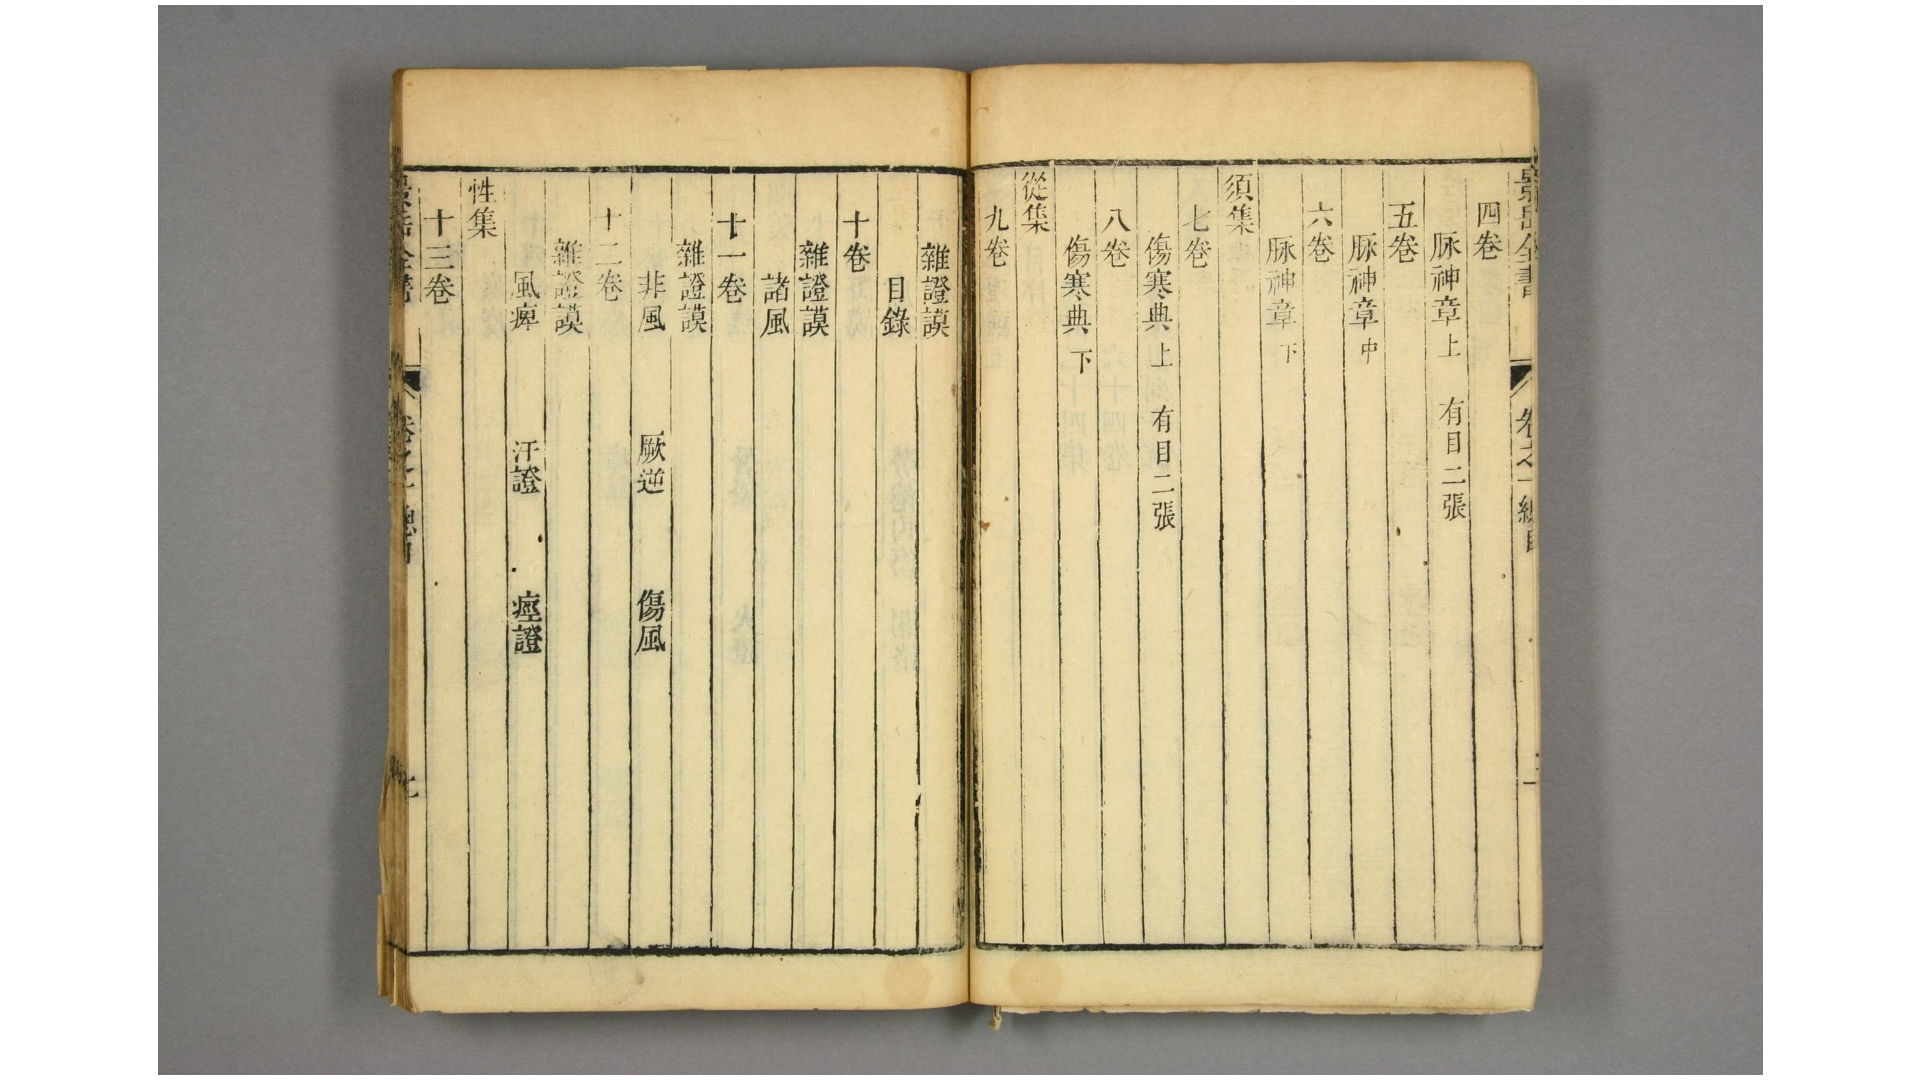 景岳全書 卷之一 總目
四卷
脉神章上 有目二張
五卷
脉神章中
六卷
脉神章下
須集
七卷
傷寒典上 有目二張
八卷
傷寒典下
從集
九卷
雜證謨
目錄
十卷
雜證謨
諸風
十一卷
雜證謨
非風 厥逆 傷風
十二卷
雜證謨
風痺 汗證 痙證
性集
十三卷
景岳全書 卷之一 總目